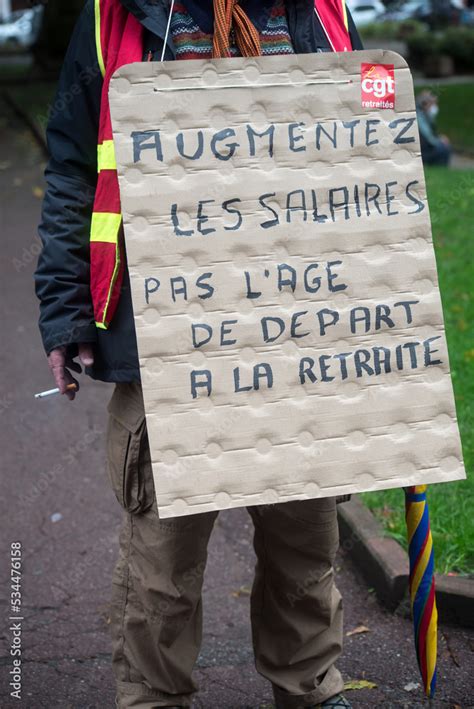 La
cgt
retraités
AUGMENTEZ
LES SALAIRES
PAS L'AGE
DE DEPART
A LA RETRAITE
Adobe Stock | #534476158